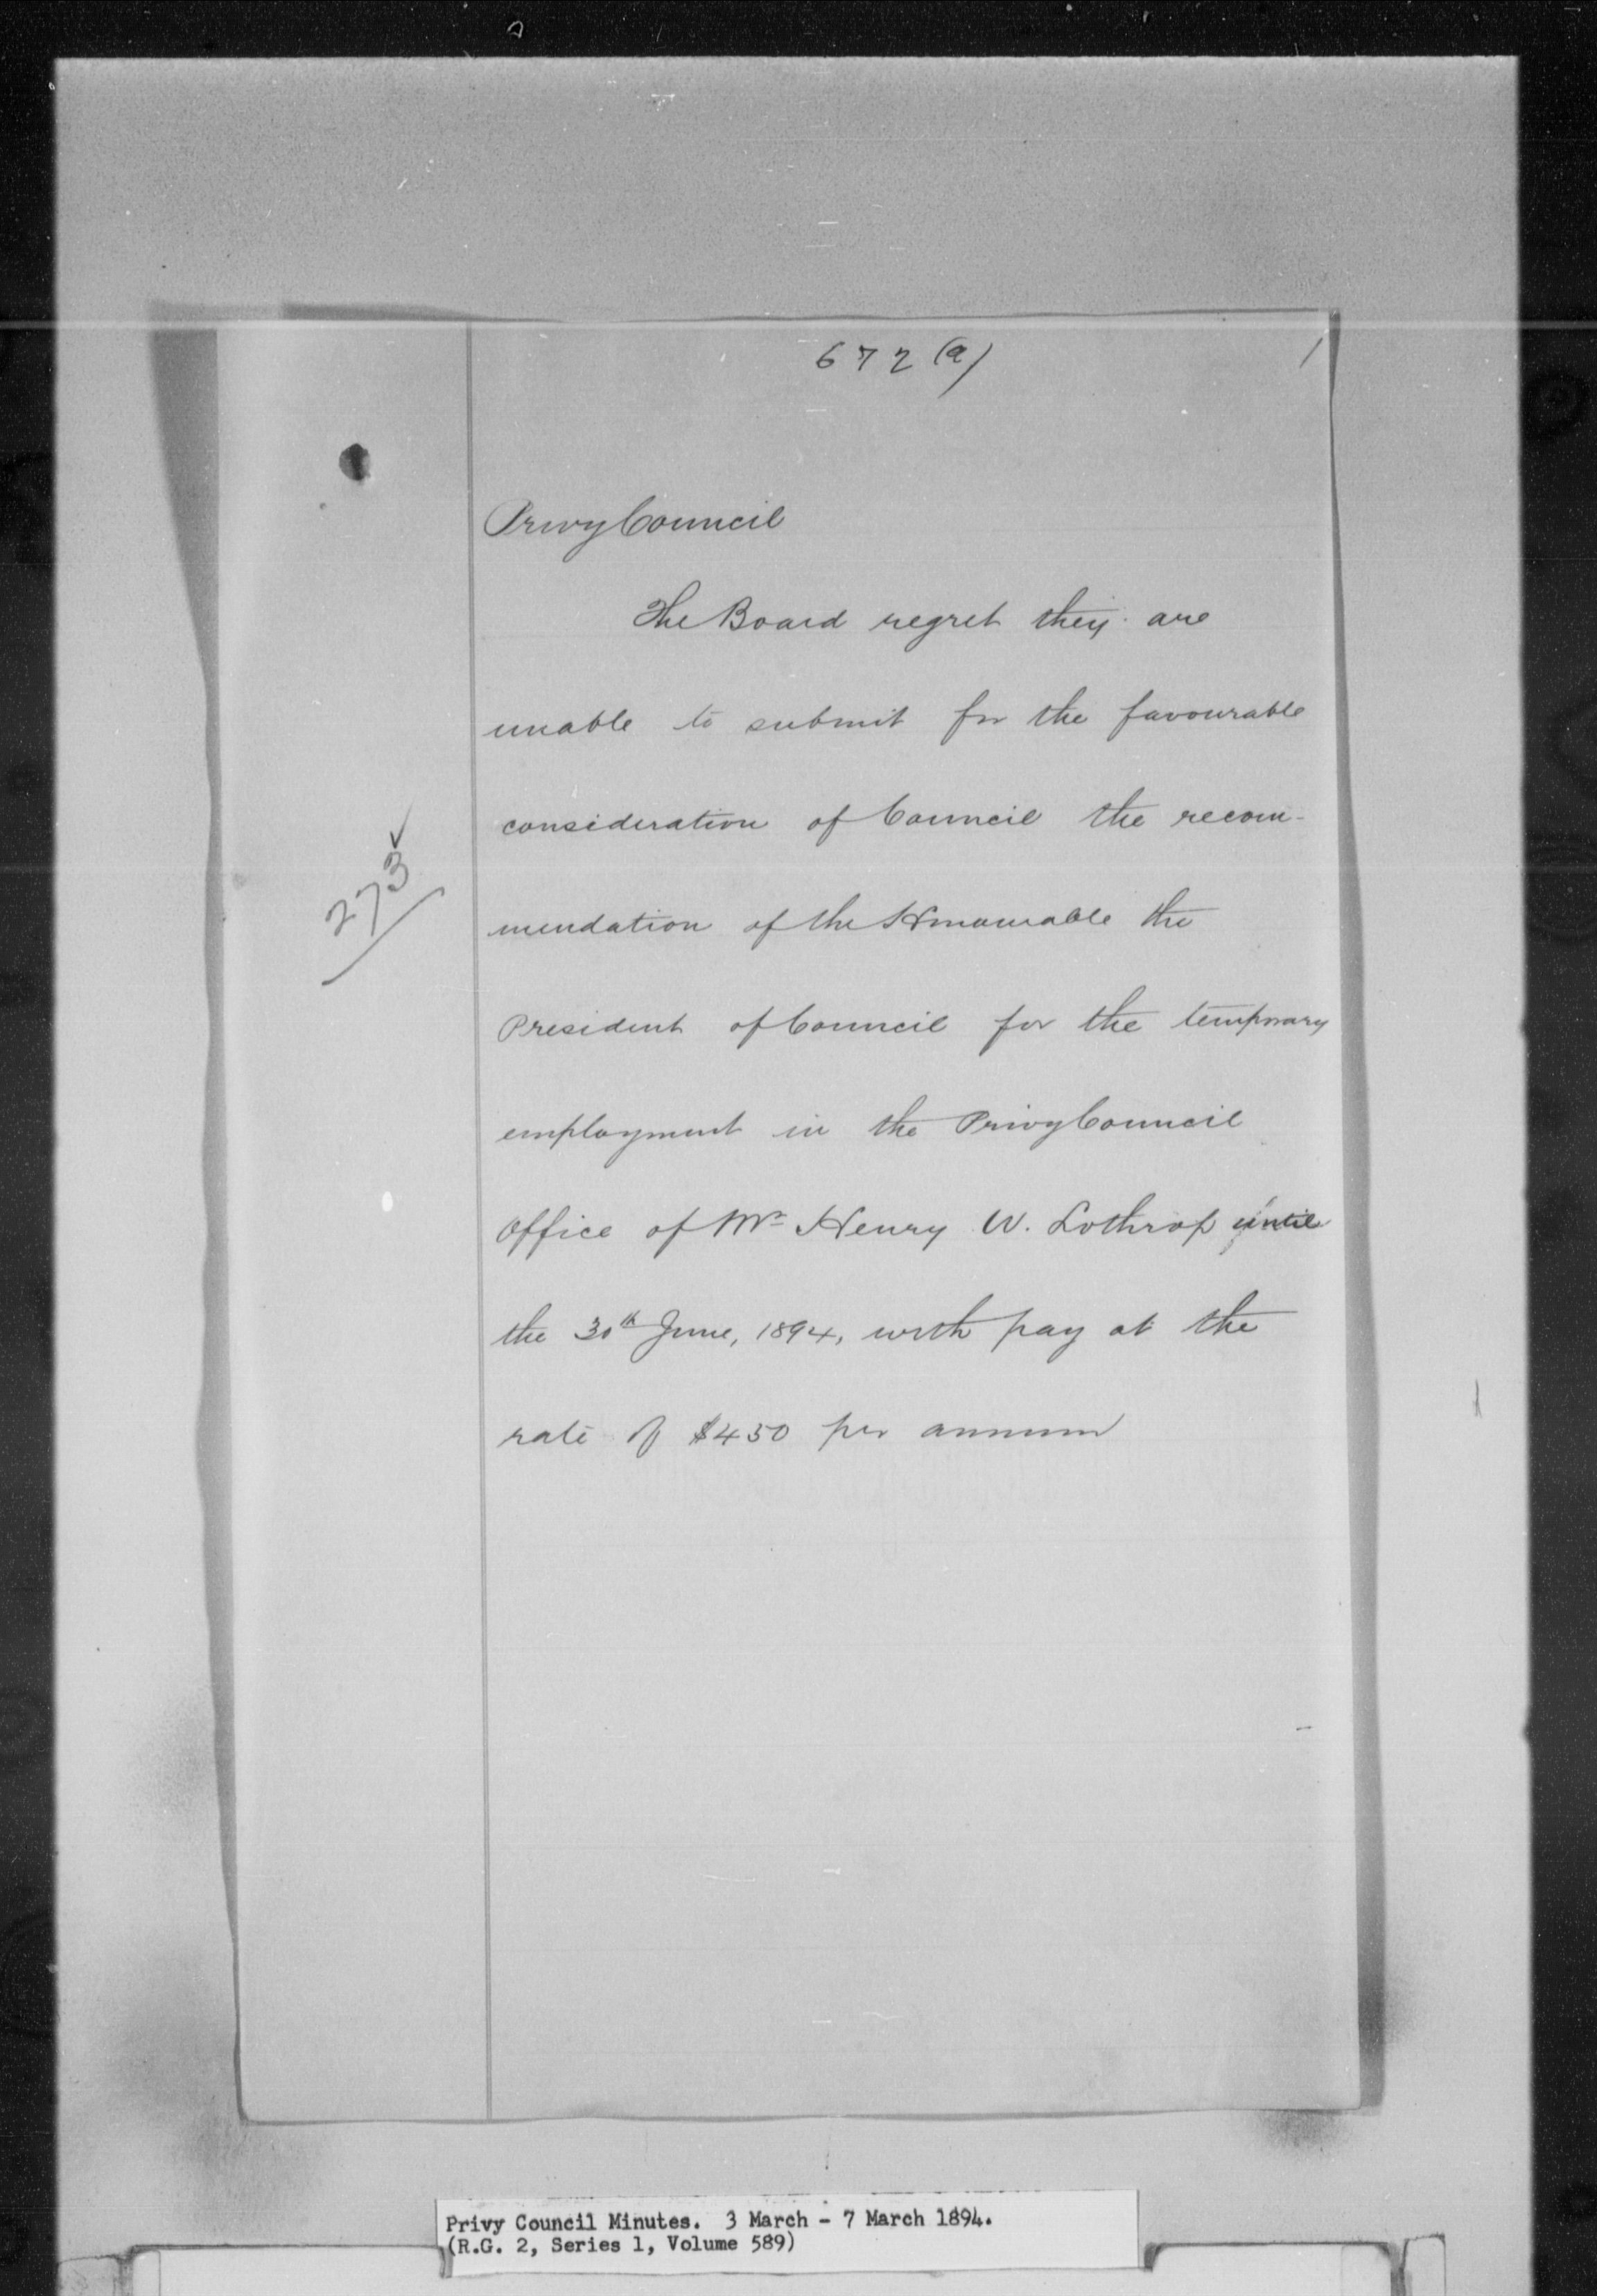 672(a)
Privy Council
The Board regret they are
unable to submit for the favourable
consideration of Council the recom-
mendation of the Honourable the
President of Council for the temporary
employment in the Privy Council
Office of Mr Henry W. Lothrop until
the 30th June, 1894, with pay at the
rate of $450 per annum
273
Privy Council Minutes. 3 March - 7 March 1894.
(R.G. 2, Series 1, Volume 589)